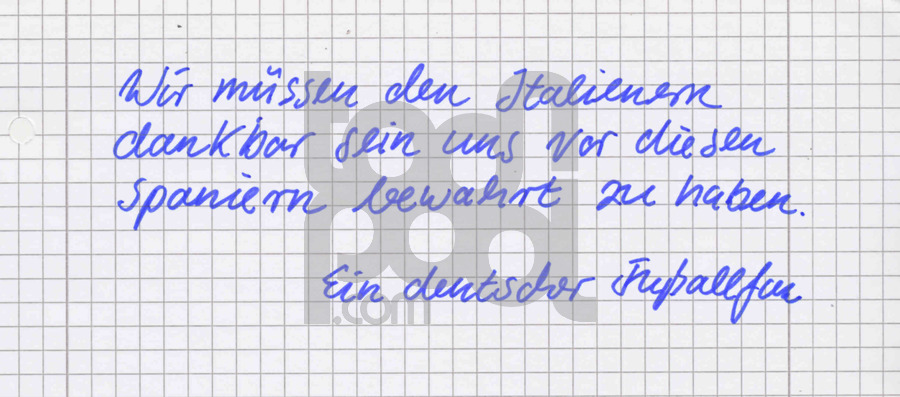 Wir müssen den Italienern
dankbar sein uns vor diesen
Spaniern bewahrt zu haben.
Ein deutscher Fußballfan
todi
podi
.com